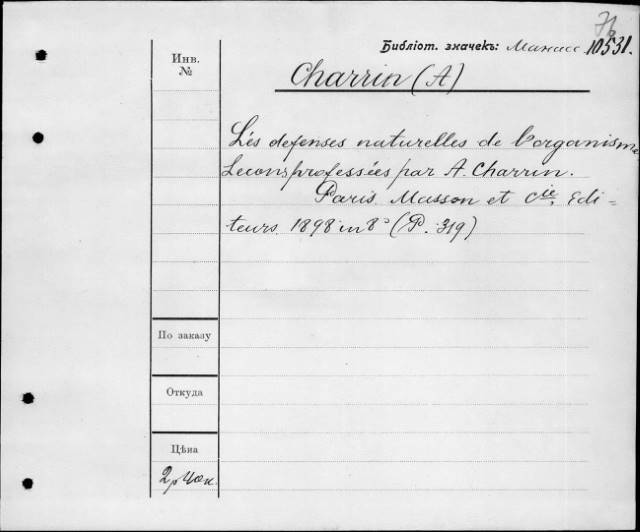 76
Библіот. значекъ: Манасс. 10531.
Инв. №
Charrin (A)
Lés defenses naturelles de l'organisme
Lecons professées par A. Charrin.
Paris. Masson et Cie, Edi-
teurs. 1898 in 8° (P. 319)
По заказу
Откуда
Цѣна
2 р 40 к.